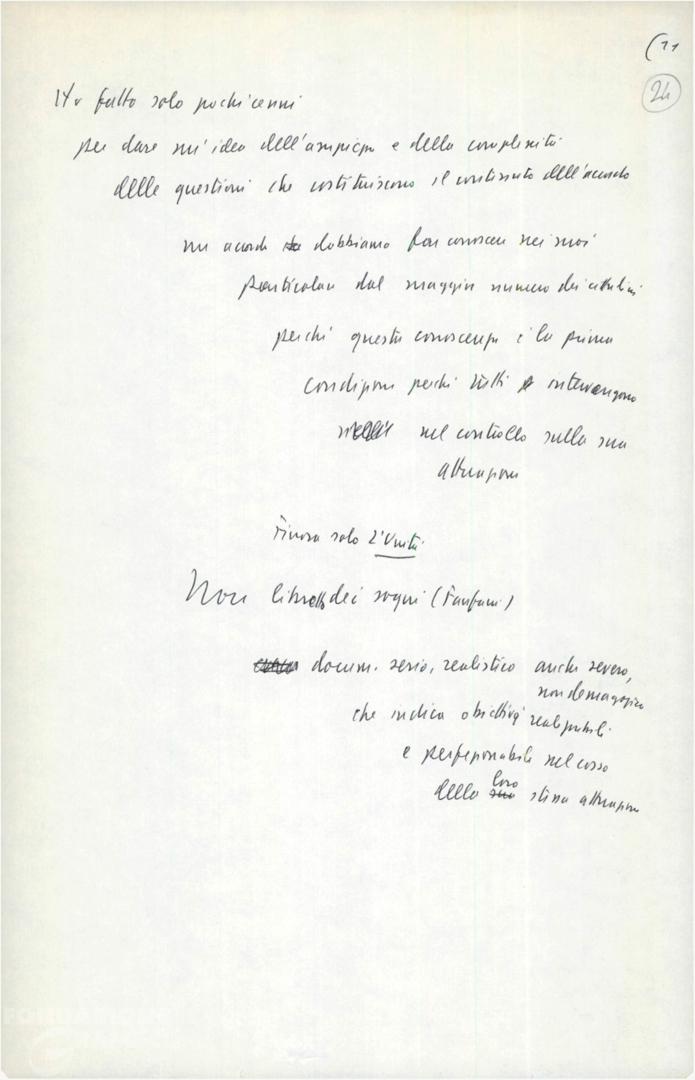 (11
24
Ho fatto solo pochi cenni
per dare un'idea dell'ampiezza e della complessità
delle questioni che costituiscono il contenuto dell'accordo
un accordo dobbiamo far conoscere nei suoi
particolari dal maggior numero dei cittadini
perché questa conoscenza è la prima
condizione perché tutti intervengano
nel controllo sulla sua
attuazione
Finora solo l'Unità
Non libretto dei sogni (Fanfani)
docum. serio, realistico anche severo,
non demagogico
che indica obiettivi realizzabili
e perfezionabili nel corso
della loro stessa attuazione